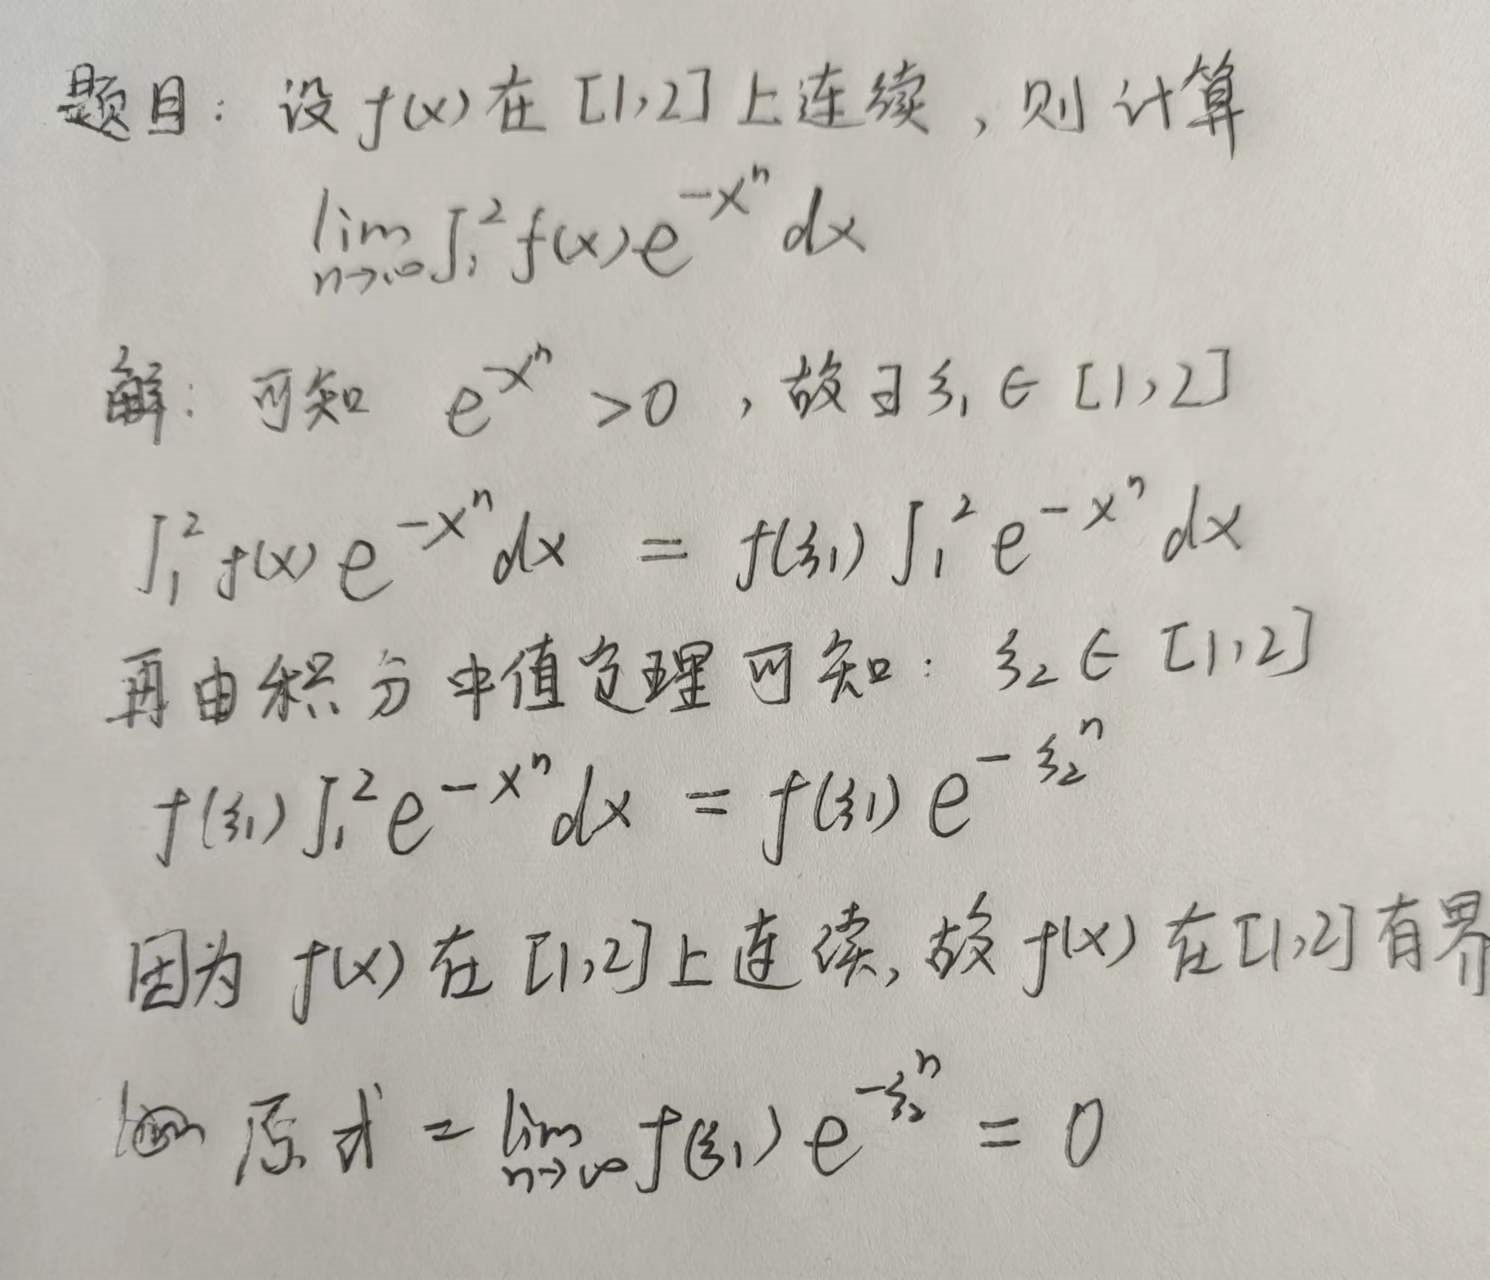 题目：设 f(x) 在 [1,2] 上连续，则计算
lim_{n→∞} ∫₁² f(x) e^{-x^n} dx
解：可知 e^{-x^n} > 0，故∃ξ₁ ∈ [1,2]
∫₁² f(x) e^{-x^n} dx = f(ξ₁) ∫₁² e^{-x^n} dx
再由积分中值定理可知：ξ₂ ∈ [1,2]
f(ξ₁) ∫₁² e^{-x^n} dx = f(ξ₁) e^{-ξ₂^n}
因为 f(x) 在 [1,2] 上连续，故 f(x) 在 [1,2] 有界
原式 = lim_{n→∞} f(ξ₁) e^{-ξ₂^n} = 0